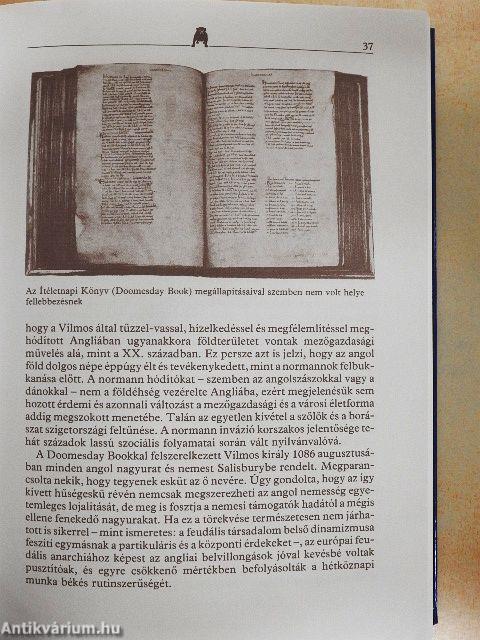 37
Az Ítéletnapi Könyv (Doomesday Book) megállapításaival szemben nem volt helye
fellebbezésnek
hogy a Vilmos által tűzzel-vassal, hízelkedéssel és megfélemlítéssel meg-
hódított Angliában ugyanakkora földterületet vontak mezőgazdasági
művelés alá, mint a XX. században. Ez persze azt is jelzi, hogy az angol
föld dolgos népe éppúgy élt és tevékenykedett, mint a normannok felbuk-
kanása előtt. A normann hódítókat – szemben az angolszászokkal vagy a
dánokkal – nem a földéhség vezérelte Angliába, ezért megjelenésük sem
hozott érdemi és azonnali változást a mezőgazdasági és a városi életforma
addig megszokott menetébe. Talán az egyetlen kivétel a szőlők és a borá-
szat szigetországi feltűnése. A normann invázió korszakos jelentősége te-
hát századok lassú szociális folyamatai során vált nyilvánvalóvá.
A Doomesday Bookkal felszerelkezett Vilmos király 1086 augusztusá-
ban minden angol nagyurat és nemest Salisburybe rendelt. Megparan-
csolta nekik, hogy tegyenek esküt az ő nevére. Úgy gondolta, hogy az így
kivett hűségeskü révén nemcsak megszerezheti az angol nemesség egye-
temleges lojalitását, de meg is fosztja a nemesi támogatók hadától a mégis
ellene fenekedő nagyurakat. Ha ez a törekvése természetesen nem járha-
tott is sikerrel – mint ismeretes: a feudális társadalom belső dinamizmusa
feszíti egymásnak a partikuláris és a központi érdekeket –, az európai feu-
dális anarchiához képest az angliai belvillongások jóval kevésbé voltak
pusztítóak, és egyre csökkenő mértékben befolyásolták a hétköznapi
munka békés rutinszerűségét.
Antikvárium.hu